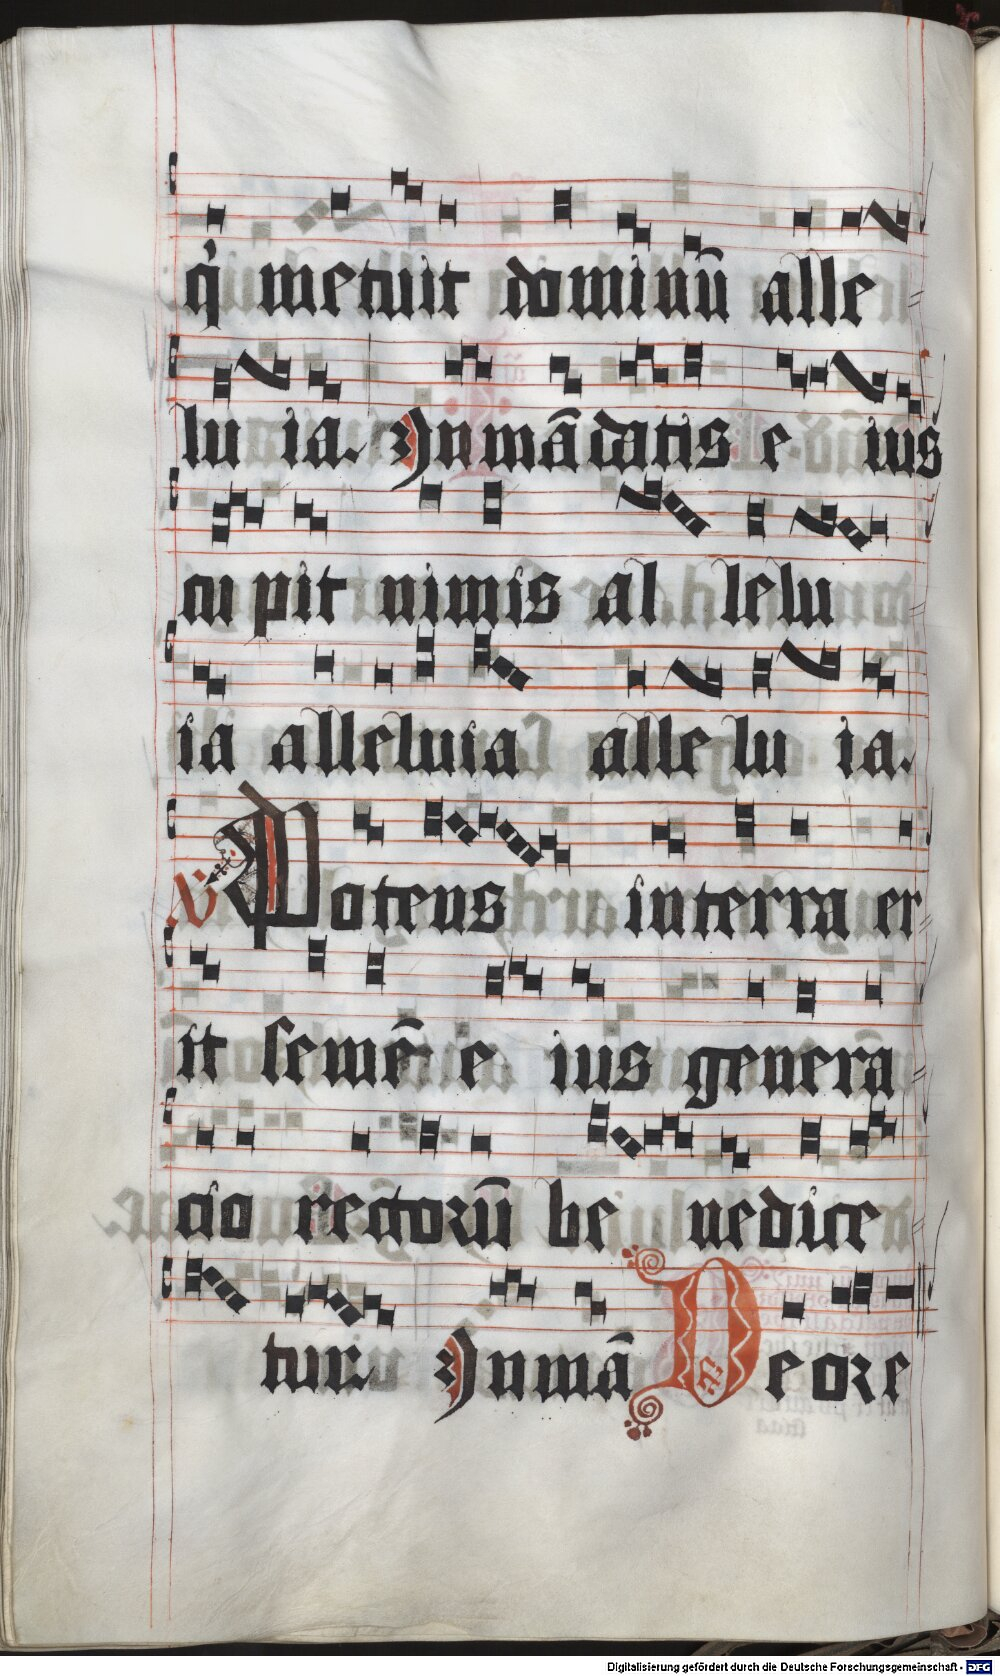 q̇ metuit dominū alle
lu ia. In mādatis e ius
cu pit nimis al lelu
ia alleluia alle lu ia.
V Potens in terra er
it semē e ius genera
cio rectorū be nedice
tur. In mā De ore
Digitalisierung gefördert durch die Deutsche Forschungsgemeinschaft - DFG